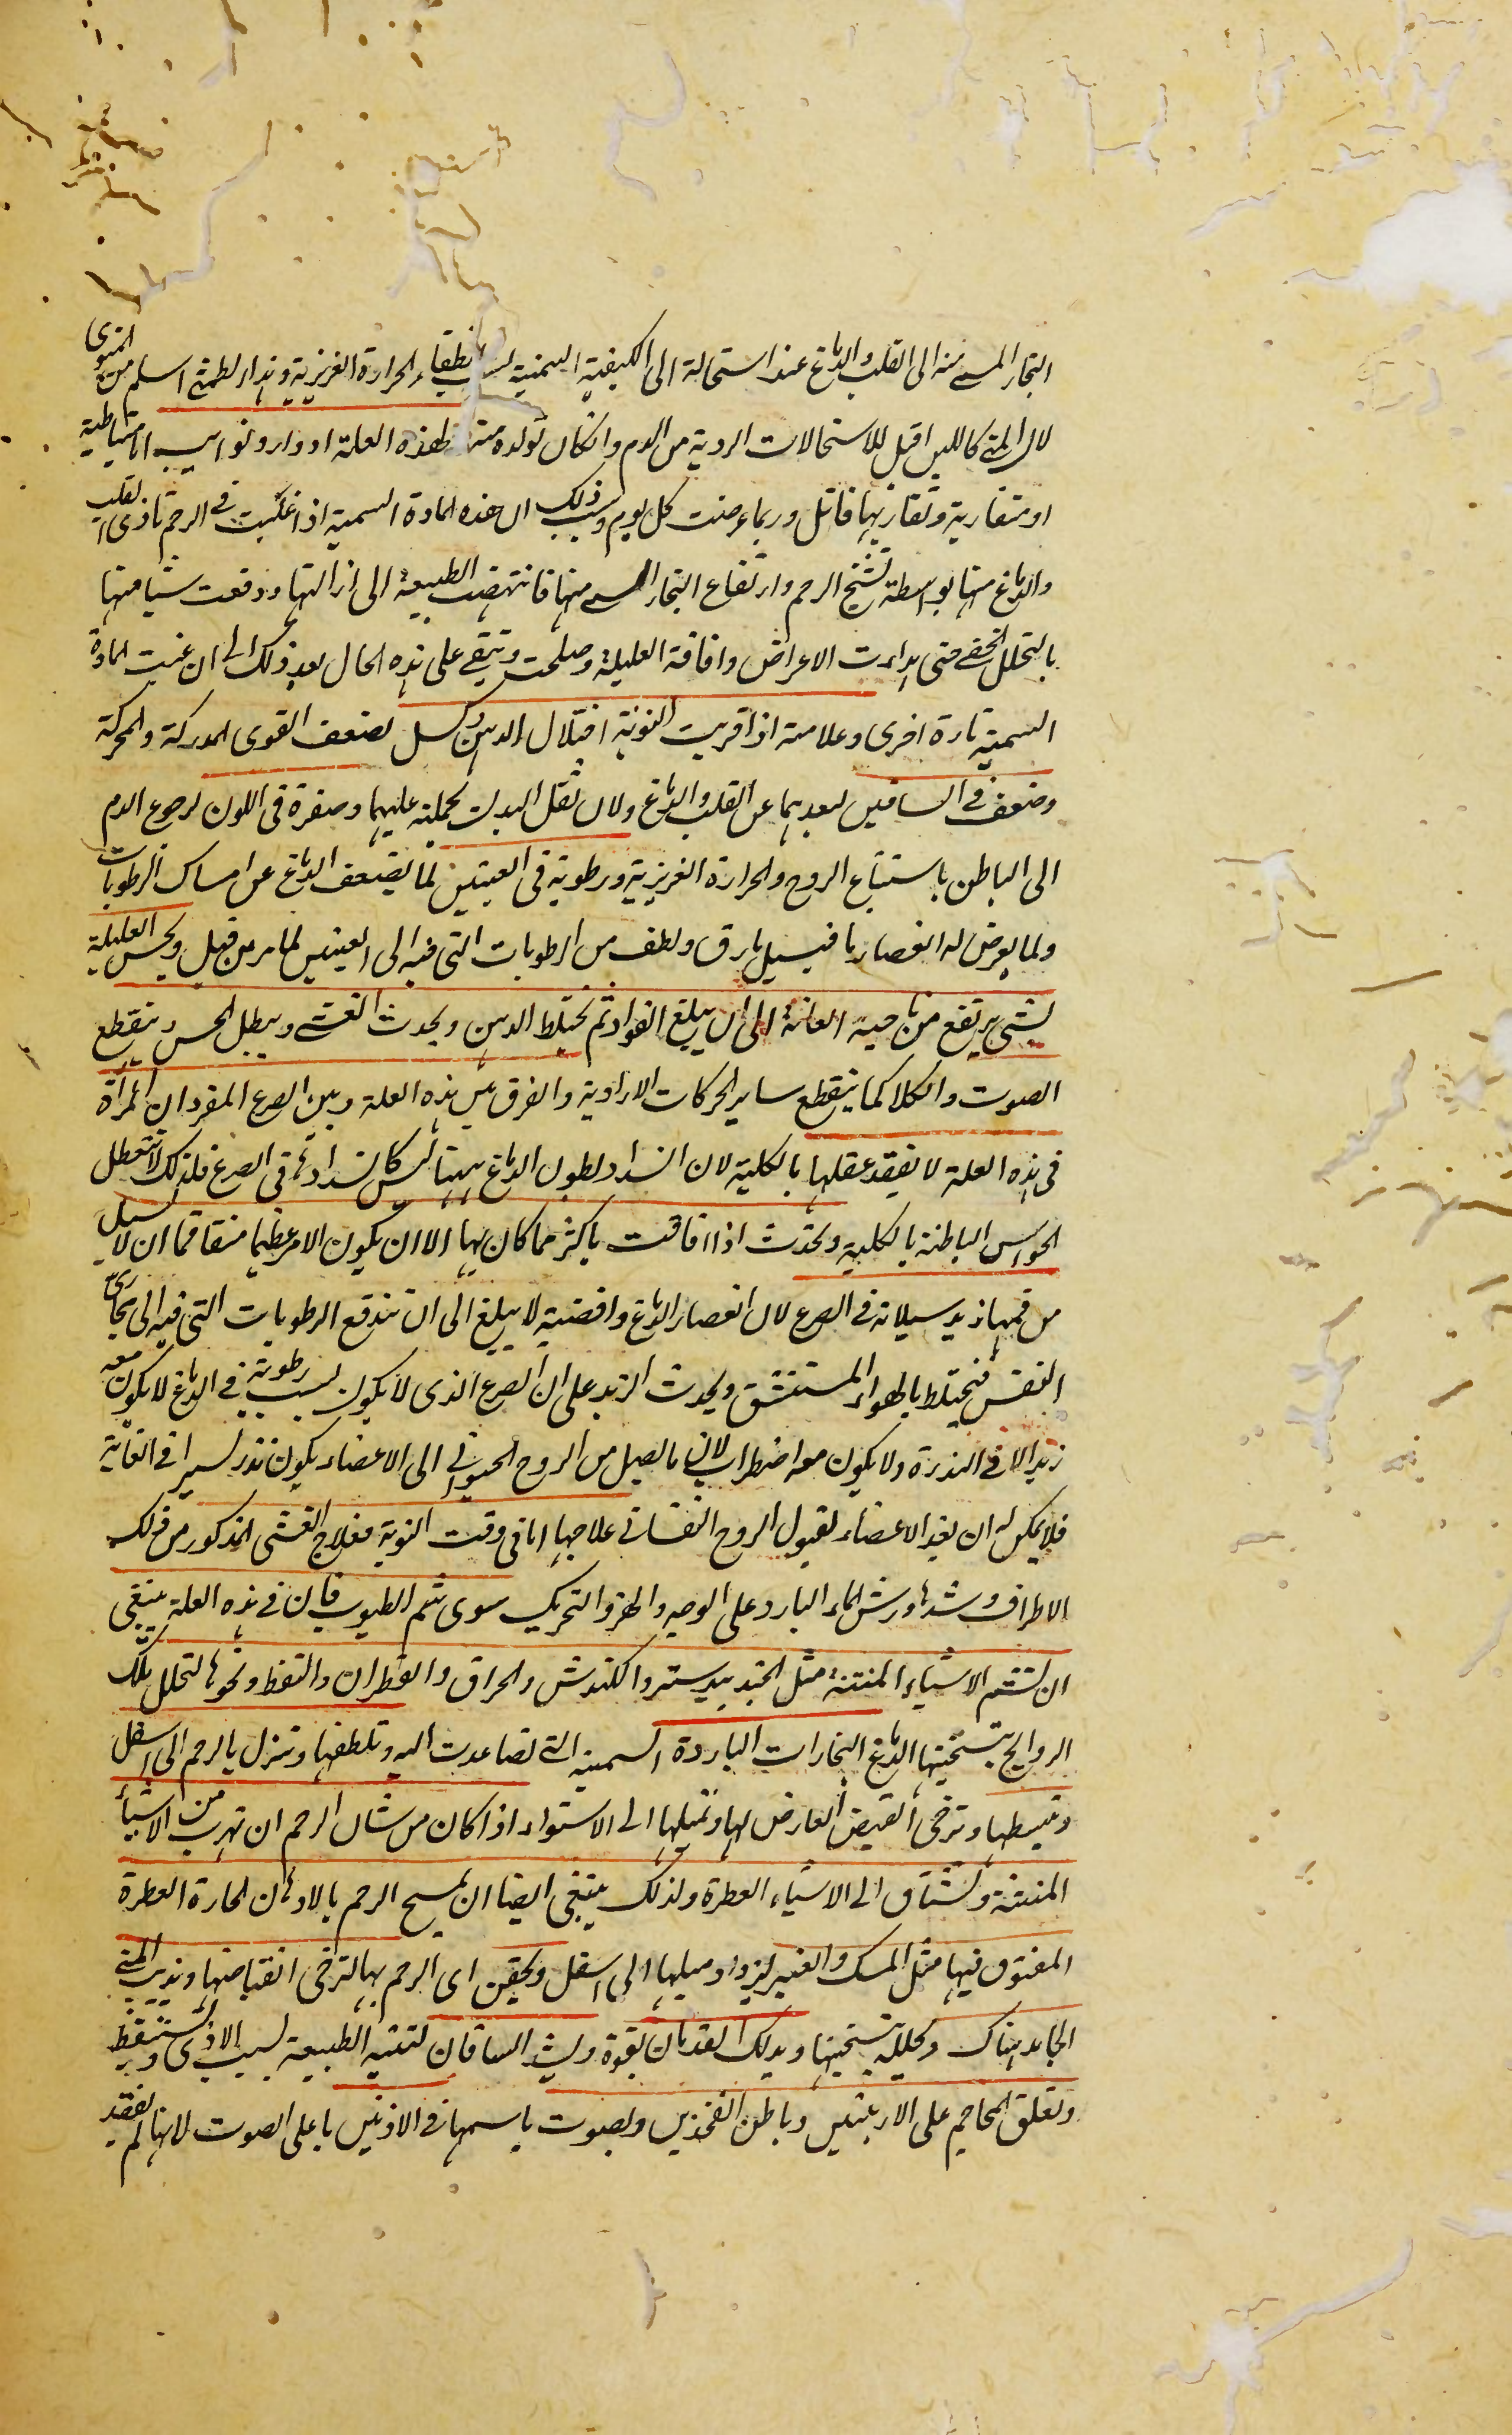 البخار السمى منه الى القلب والدماغ عند استحالته الى الكيفية السمية لسبب انطفاء الحرارة الغريزية وهذا اى الطمثى اسلم من المنوى
لان المنى كاللبن اقبل للاستحالات الردية من الدم وانكان تولده منه ولهذه العلة ادوار ونوايب اما متباطية
او متقاربة وتقاربها قاتل وربما عرضت كل يوم وسبب ذلك ان هذه المادة السمية اذا غلبت فى الرحم تاذى القلب
والدماغ منها بواسطة تشنج الرحم وارتفاع البخار السمى منها فانتهضت الطبيعة الى ازالتها ودفعت شيا منها
بالتحلل الخفى حتى هدات الاعراض وافاقة العليلة وصلحت وتبقى على هذه الحال بعد ذلك الى ان غلبت المادة
السمية تارة اخرى وعلامته اذا قربت النوبة اختلال الذهن وكسل لضعف القوى المدركة والمحركة
وضعف فى الساقين لبعدهما عن القلب والدماغ ولان ثقل البدن بحملته عليهما وصفرة فى اللون لرجوع الدم
الى الباطن باستتباع الروح والحرارة الغريزية ورطوبة فى العينين لما يضعف الدماغ عن امساك الرطوبات
ولما يعرض له انعصار ما فيسيل ما رق ولطف من الرطوبات التى فيه الى العينين لما مر من قبل ويحس العليلة
بشىء يرتفع من ناحية العانة الى ان يبلغ الفواد ثم يختلط الذهن ويحدث الغشى ويبطل الحس وينقطع
الصوت والكلام كما ينقطع ساير الحركات الارادية والفرق بين هذه العلة وبين الصرع المفرد ان المراة
فى هذه العلة لا يفقد عقلها بالكلية لان انسداد بطون الدماغ ههنا ليس كانسدادها فى الصرع فلذلك لا تتعطل
الحواس الباطنة بالكلية وتحدث اذا افاقت باكثر مما كان بها الا ان يكون الامر عظيما متفاقما ان لا يسيل
من فمها زبد سيلانه فى الصرع لان انعصار الدماغ وانقباضه لا يبلغ الى ان تندفع الرطوبات التى فيه الى مجارى
النفس فيختلط بالهواء المستنشق ويحدث الزبد على ان الصرع الذى لا يكون بسبب رطوبة فى الدماغ لا يكون معه
زبد الا فى الندرة ولا يكون معه اضطراب لان ما يصل من الروح الحيوانى الى الاعضاء يكون نزر يسير فى الغاية
فلا يمكن له ان يعد الاعضاء لقبول الروح النفسانى علاجها اما فى وقت النوبة فعلاج الغشى المذكور من ذلك
الاطراف وشدها ورش الماء البارد على الوجه والهز والتحريك سوى شم الطيوب فان فى هذه العلة ينبغى
ان تشم الاشياء المنتنة مثل الجندبيدستر والكندش والحراق والقطران والنفط ونحوها لتحلل بتلك
الروايح بتسخينها الدماغ البخارات الباردة السمية التى تصاعدت اليه وتلطفها وتنزل بالرحم الى اسفل
وتبسطها وترخى القبض العارض لها وتميلها الى الاستواء اذا كان من شان الرحم ان تهرب من الاشياء
المنتنة وتشتاق الى الاشياء العطرة ولذلك ينبغى ايضا ان يمسح الرحم بالادهان الحارة العطرة
المفتوق فيها مثل المسك والعنبر ليزداد ميلها الى اسفل ويحقن اى الرحم بها لترخى انقباضها ويذيب المنى
الجامد هناك ويحلله بتسخينها ويدلك القدمان بقوة ويشد الساقان لتنتبه الطبيعة بسبب الاذى وتستيقظ
وتعلق المحاجم على الاربيتين وباطن الفخذين ويصوت باسمها فى الاذنين باعلى الصوت لانها لم يفقد